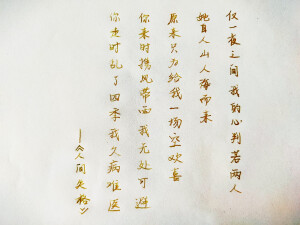 仅一夜之间我的心判若两人
她自人山人海而来
原来只为给我一场空欢喜
你来时携风带雨我无处可避
你走时乱了四季我久病难医
——《人间失格》